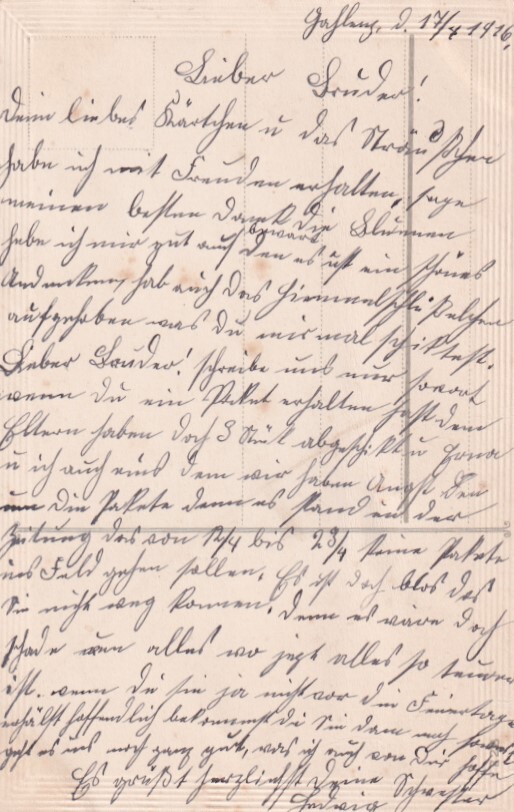 Gahlenz, d. 17/4 1916,
Lieber Bruder!
Dein liebes Kärtchen u das Sträußchen
habe ich mit Freuden erhalten, sage
meinen besten Dank die Blumen
habe ich mir gut auf bewart den es ist ein schönes
Andenken, hab auch das Himmelschlüßelchen
aufgehoben was Du mir mal schiktest.
Lieber Bruder! schreibe uns nur sovort
wenn Du ein Paket erhalten hast dem
Eltern haben doch 3 Stük abgeschikt u Erna
u ich auch eins dem wir haben Angst den
um die Pakete denn es stand in der
Zeitung das von 12/4 bis 23/4 keine Pakete
ins Feld gehen sollen. Es ist doch blos das
Sie nicht weg kommen. Denn es wäre doch
schade um alles wo jezt alles so teuer
ist. wenn Du sie ja nicht vor die Feiertage
erhälst hoffendlich bekommst du Sie dann noch sovort
geht es uns noch ganz gut, was ich auch von Dir hoffe
Es grüßt herzlichst Deine Schwester
Hedwig